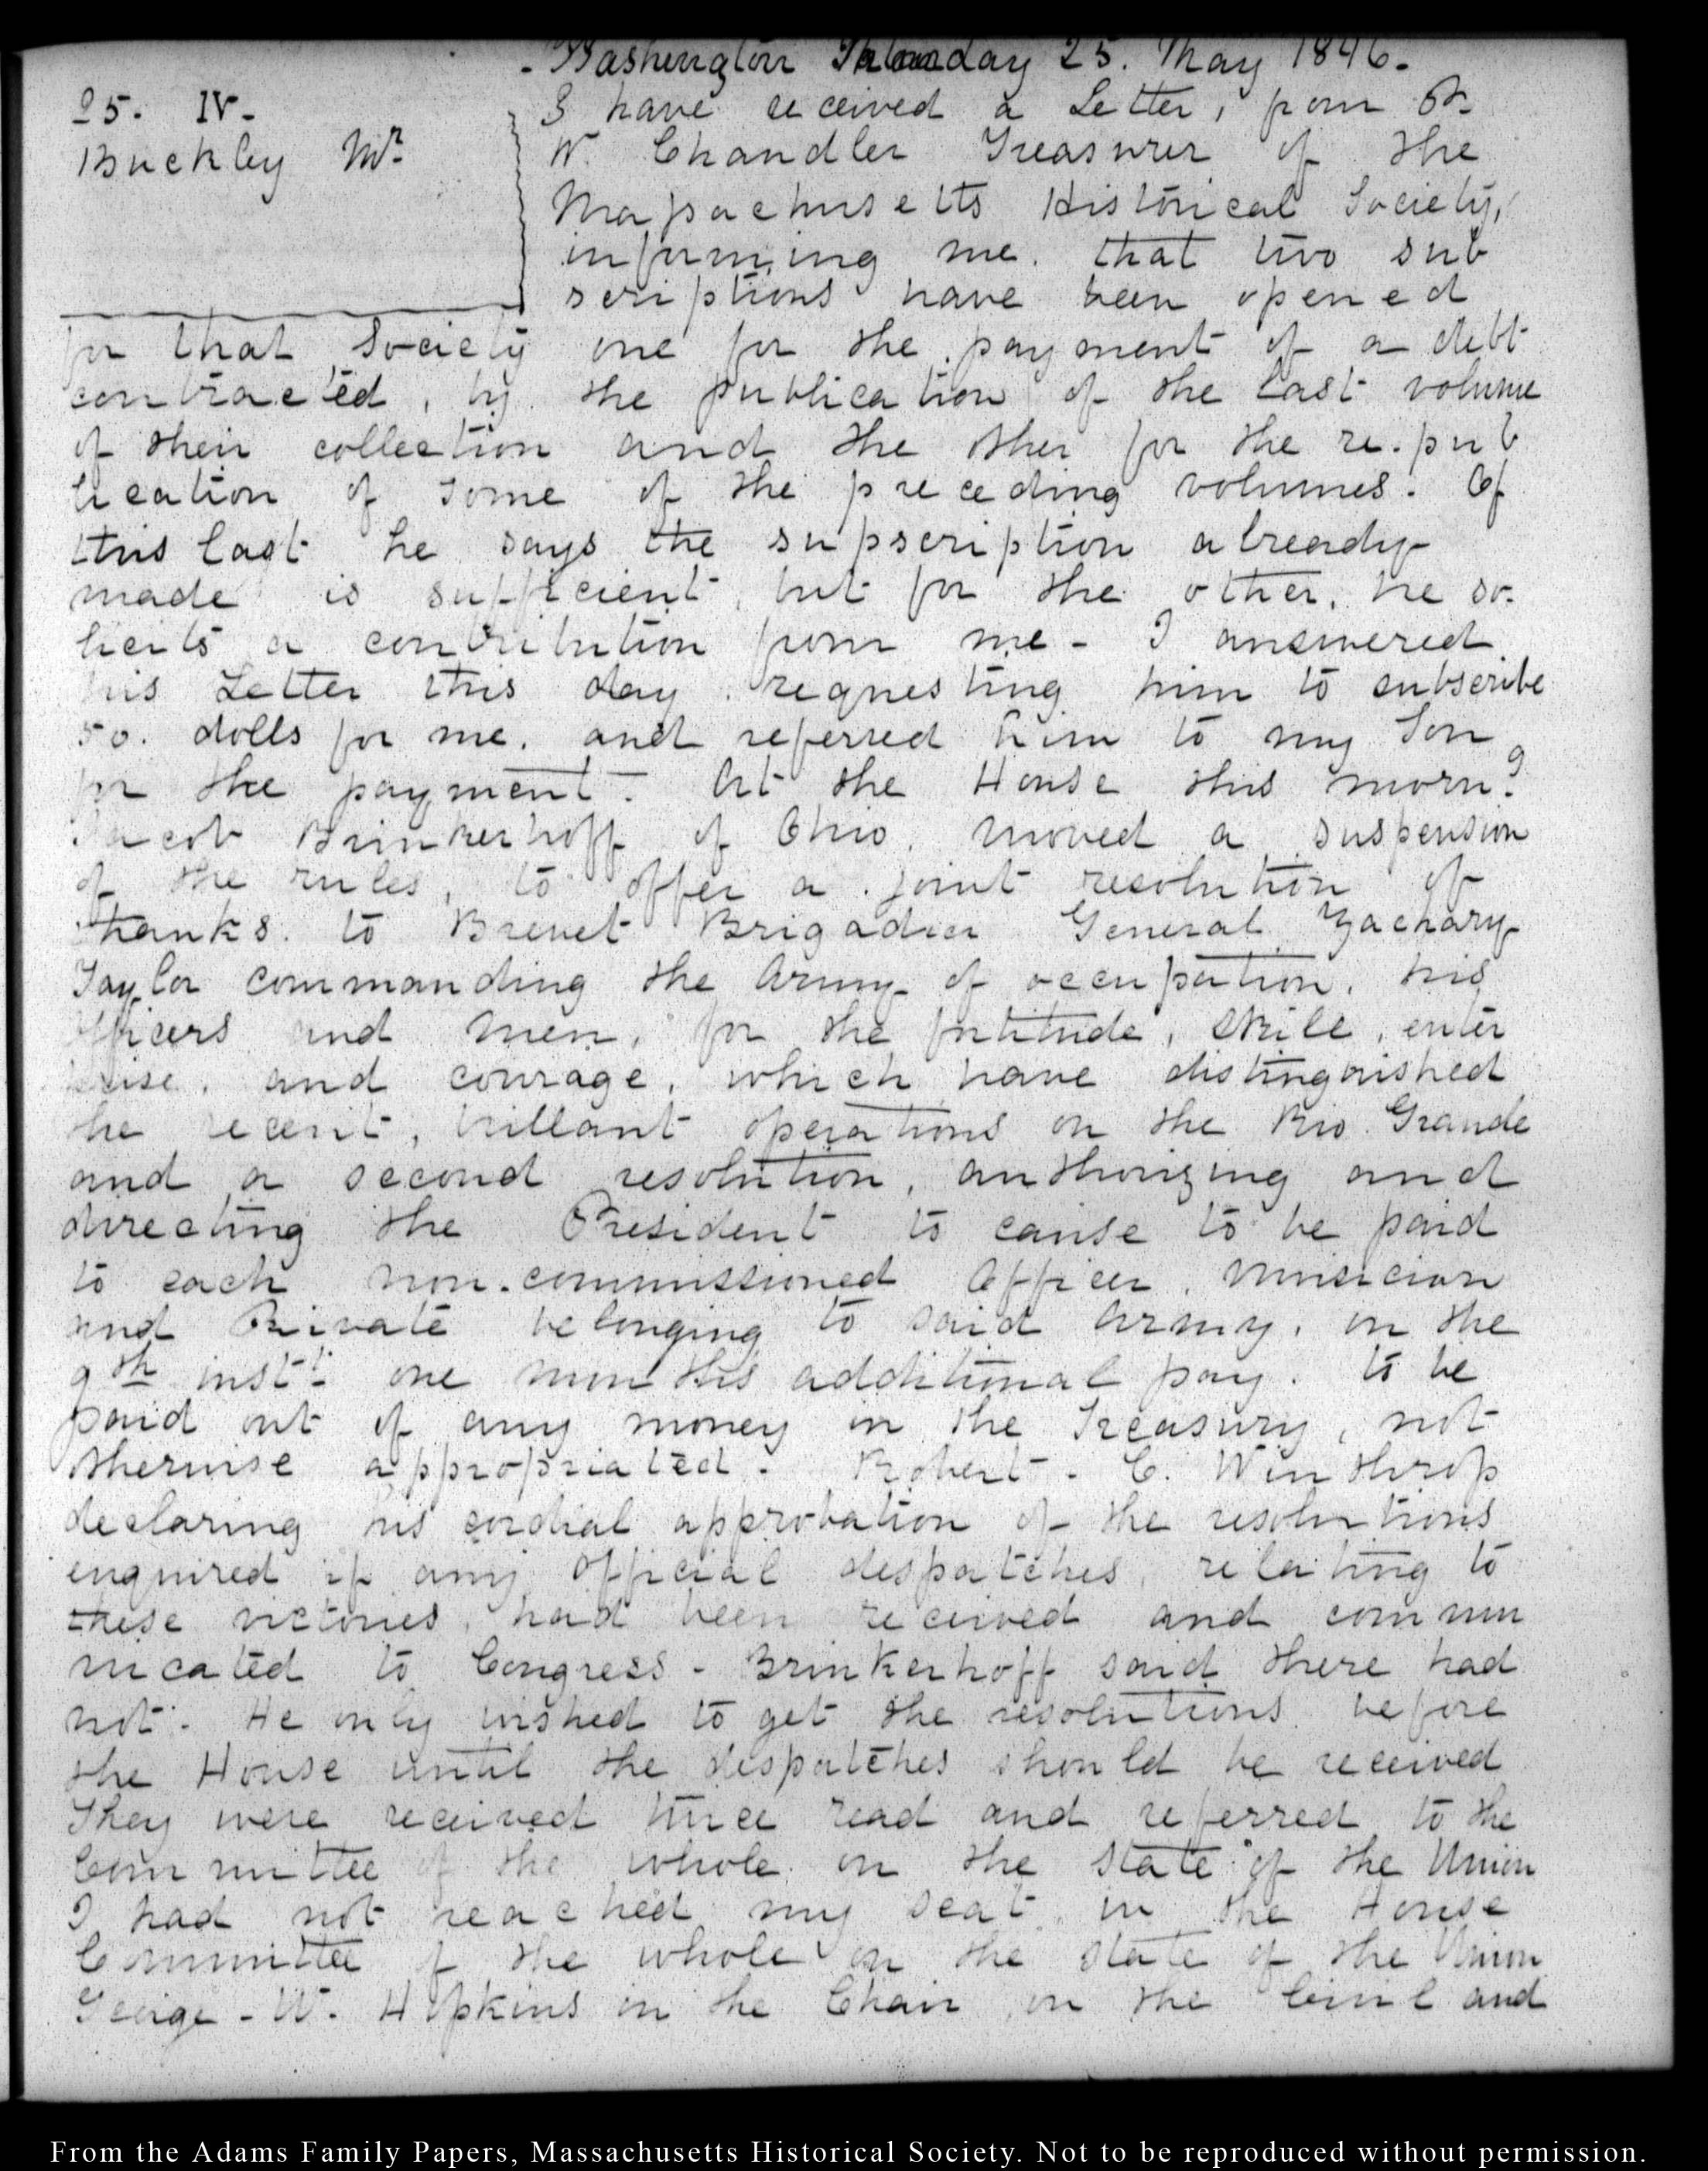 Washington Monday 25. May 1846.
25. IV.
Buckley Mr.
I have received a Letter, from P.
W. Chandler Treasurer of the
Massachusetts Historical Society,
informing me. that two sub
scriptions have been opened
for that Society one for the payment of a debt
contracted, by the publication of the last volume
of their collection and the other for the re-pub
lication of some of the preceding volumes. Of
this last he says the supscription already
made is sufficient, but for the other, he so-
licits a contribution from me - I answered
his Letter this day requesting him to subscribe
50. dolls for me. and referred him to my Son
for the payment - At the House this morng
Jacob Brinkerhoff of Ohio, moved a suspension
of the rules, to offer a joint resolution of
thanks. to Brevet Brigadier General Zachary
Taylor commanding the Army of occupation, his
officers and men, for the fortitude, skill, enter
prise, and courage, which have distinguished
the recent, brillant operations on the Rio Grande
and a second resolution, authorizing and
directing the President to cause to be paid
to each non-commissioned Officer, musician
and Private belonging to said Army, on the
9th instt: one months additional pay. to be
paid out of any money in the Treasury, not
otherwise appropriated. Robert. C. Winthrop
declaring his cordial approbation of the resolutions
enquired if any official despatches, relating to
these victories, had been received and commu
nicated to Congress - Brinkerhoff said there had
not. He only wished to get the resolutions before
the House until the despatches should be received
They were received twice read and referred to the
Committee of the whole on the State of the Union
I had not reached my seat in the House
Committee of the whole on the state of the Union
George - W. Hopkins in the Chair, on the Civil and
From the Adams Family Papers, Massachusetts Historical Society. Not to be reproduced without permission.